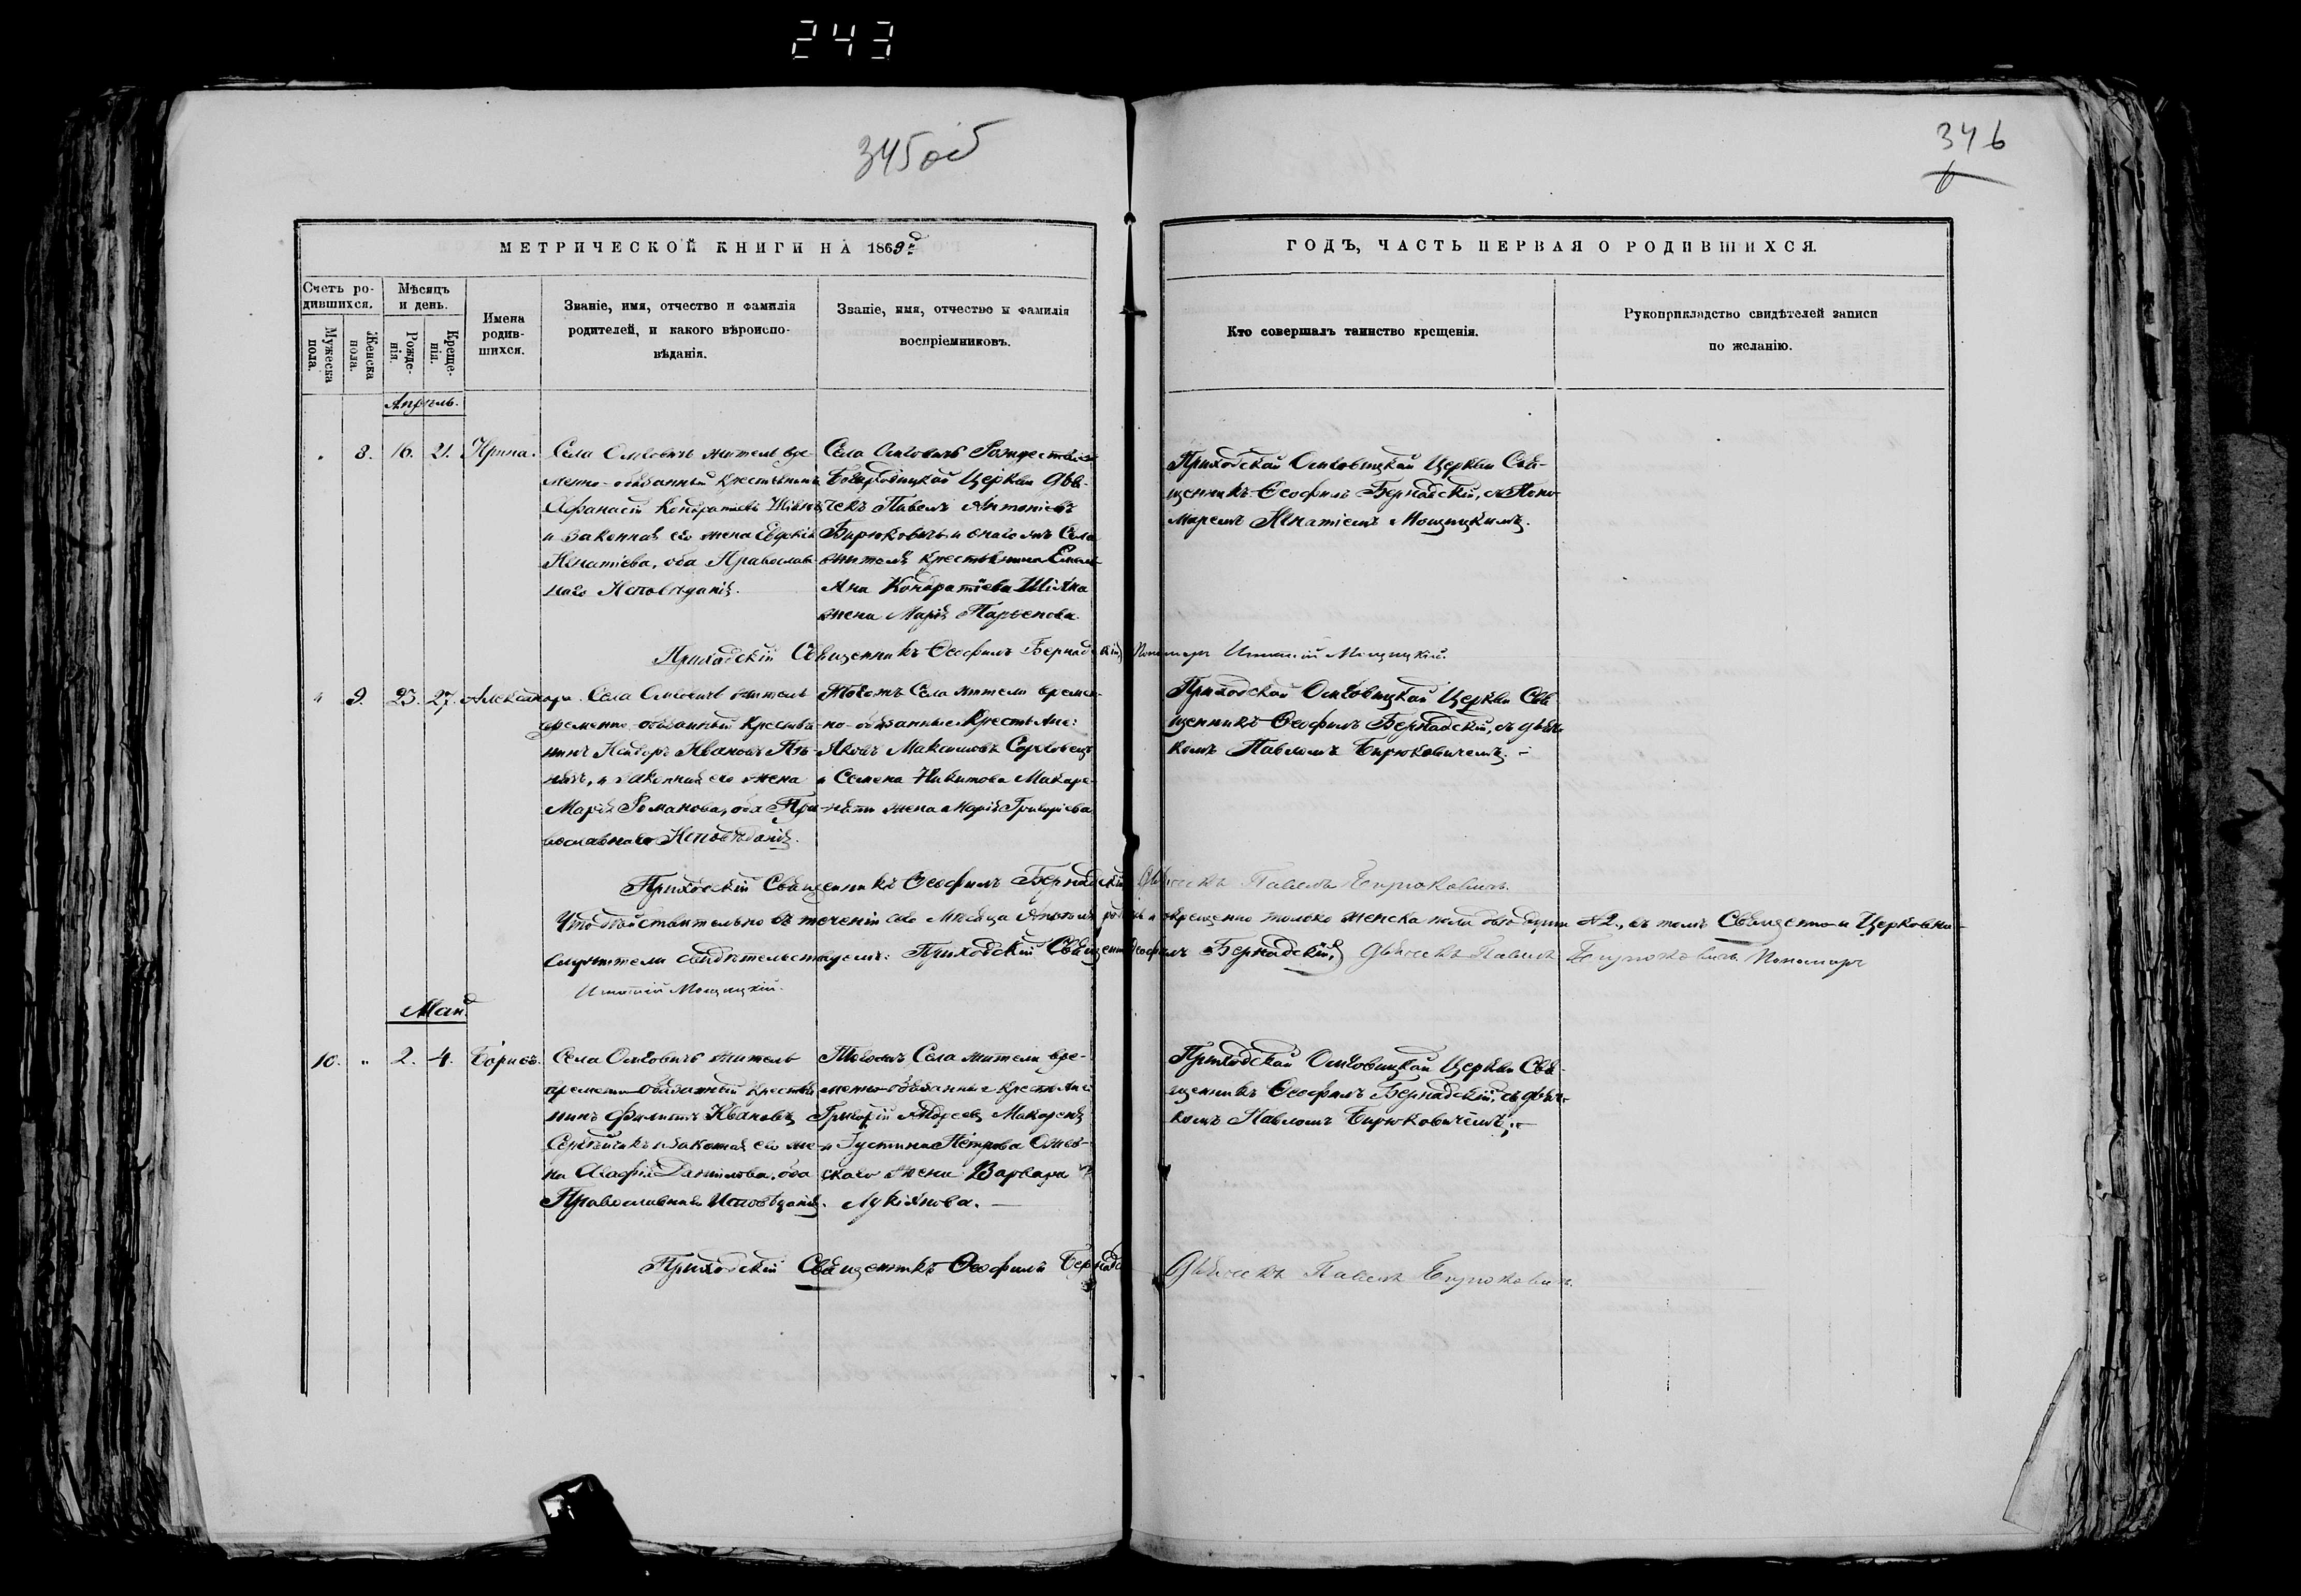 243
345об
346
МЕТРИЧЕСКОЙ КНИГИ НА 1869й
ГОДЪ, ЧАСТЬ ПЕРВАЯ О РОДИВШИХСЯ.
Счетъ ро-
дившихся.
Мужеска
пола.
Женска
пола.
Мѣсяцъ
и день.
Рожде-
нія.
Креще-
нія.
Имена
родив-
шихся.
Званіе, имя, отчество и фамилія
родителей, и какого вѣроиспо-
вѣданія.
Званіе, имя, отчество и фамилія
воспріемниковъ.
Кто совершалъ таинство крещенія.
Рукоприкладство свидѣтелей записи
по желанію.
Апрѣль.
8. 16. 21. Ирина.
Села житель вре-
менно-обязанный Крестьянинъ
Афанасій Кондратіевъ
и законная его жена Евдокія
Игнатіева, оба Православ-
наго Исповѣданія.
Села
Церкви Дья-
чекъ Павелъ Антоніевъ
Бирюковичъ и онаго жъ Села
жителя крестьянина
Кондратіева Шіяна
жена Марія Парѳенова.
Приходской Церкви Свя-
щенникъ Ѳеофилъ Бернадскій, съ Поно-
маремъ Игнатіемъ Мощицкимъ.
Приходскій Священникъ Ѳеофилъ Бернадскій Пономарь Игнатій Мощицкій.
" 9. 23. 27. Александра.
Села житель
временно-обязанный Крестья-
нинъ Ивановъ
и законная его жена
Марія Романова, оба Пра-
вославнаго Исповѣданія.
Тогожъ Села жители времен-
но-обязанные Крестьяне:
Яковъ Максимовъ
и Семена Никитова Макаре-
жена Марія Григоріева
Приходской Церкви Свя-
щенникъ Ѳеофилъ Бернадскій, съ дьяч-
комъ Павломъ Бирюковичемъ.
Приходскій Священникъ Ѳеофилъ Бернадскій Дьячекъ Павелъ Бирюковичъ.
Что дѣйствительно въ теченіи сего Мѣсяца Апрѣля и крещено только женска пола двѣ души №2., въ томъ Священно и Церковно-
служители свидѣтельствуемъ: Приходскій Священникъ Ѳеофилъ Бернадскій, Дьячекъ Павелъ Бирюковичъ Пономарь
Игнатій Мощицкій.
Май
10. " 2. 4. Борисъ.
Села житель
временно-обязанный Крестья-
нинъ Филиппъ Ивановъ
и законная его же-
на Агафія Данилова, оба
Православнаго Исповѣданія.
Тогожъ Села жители вре-
менно-обязанные Крестьяне
Григорій Андреевъ
и Іустина Петрова
жена Варвара
Лукіянова.
Приходской Церкви Свя-
щенникъ Ѳеофилъ Бернадскій, съ дьяч-
комъ Павломъ Бирюковичемъ.
Приходскій Священникъ Ѳеофилъ
Дьячекъ Павелъ Бирюковичъ.